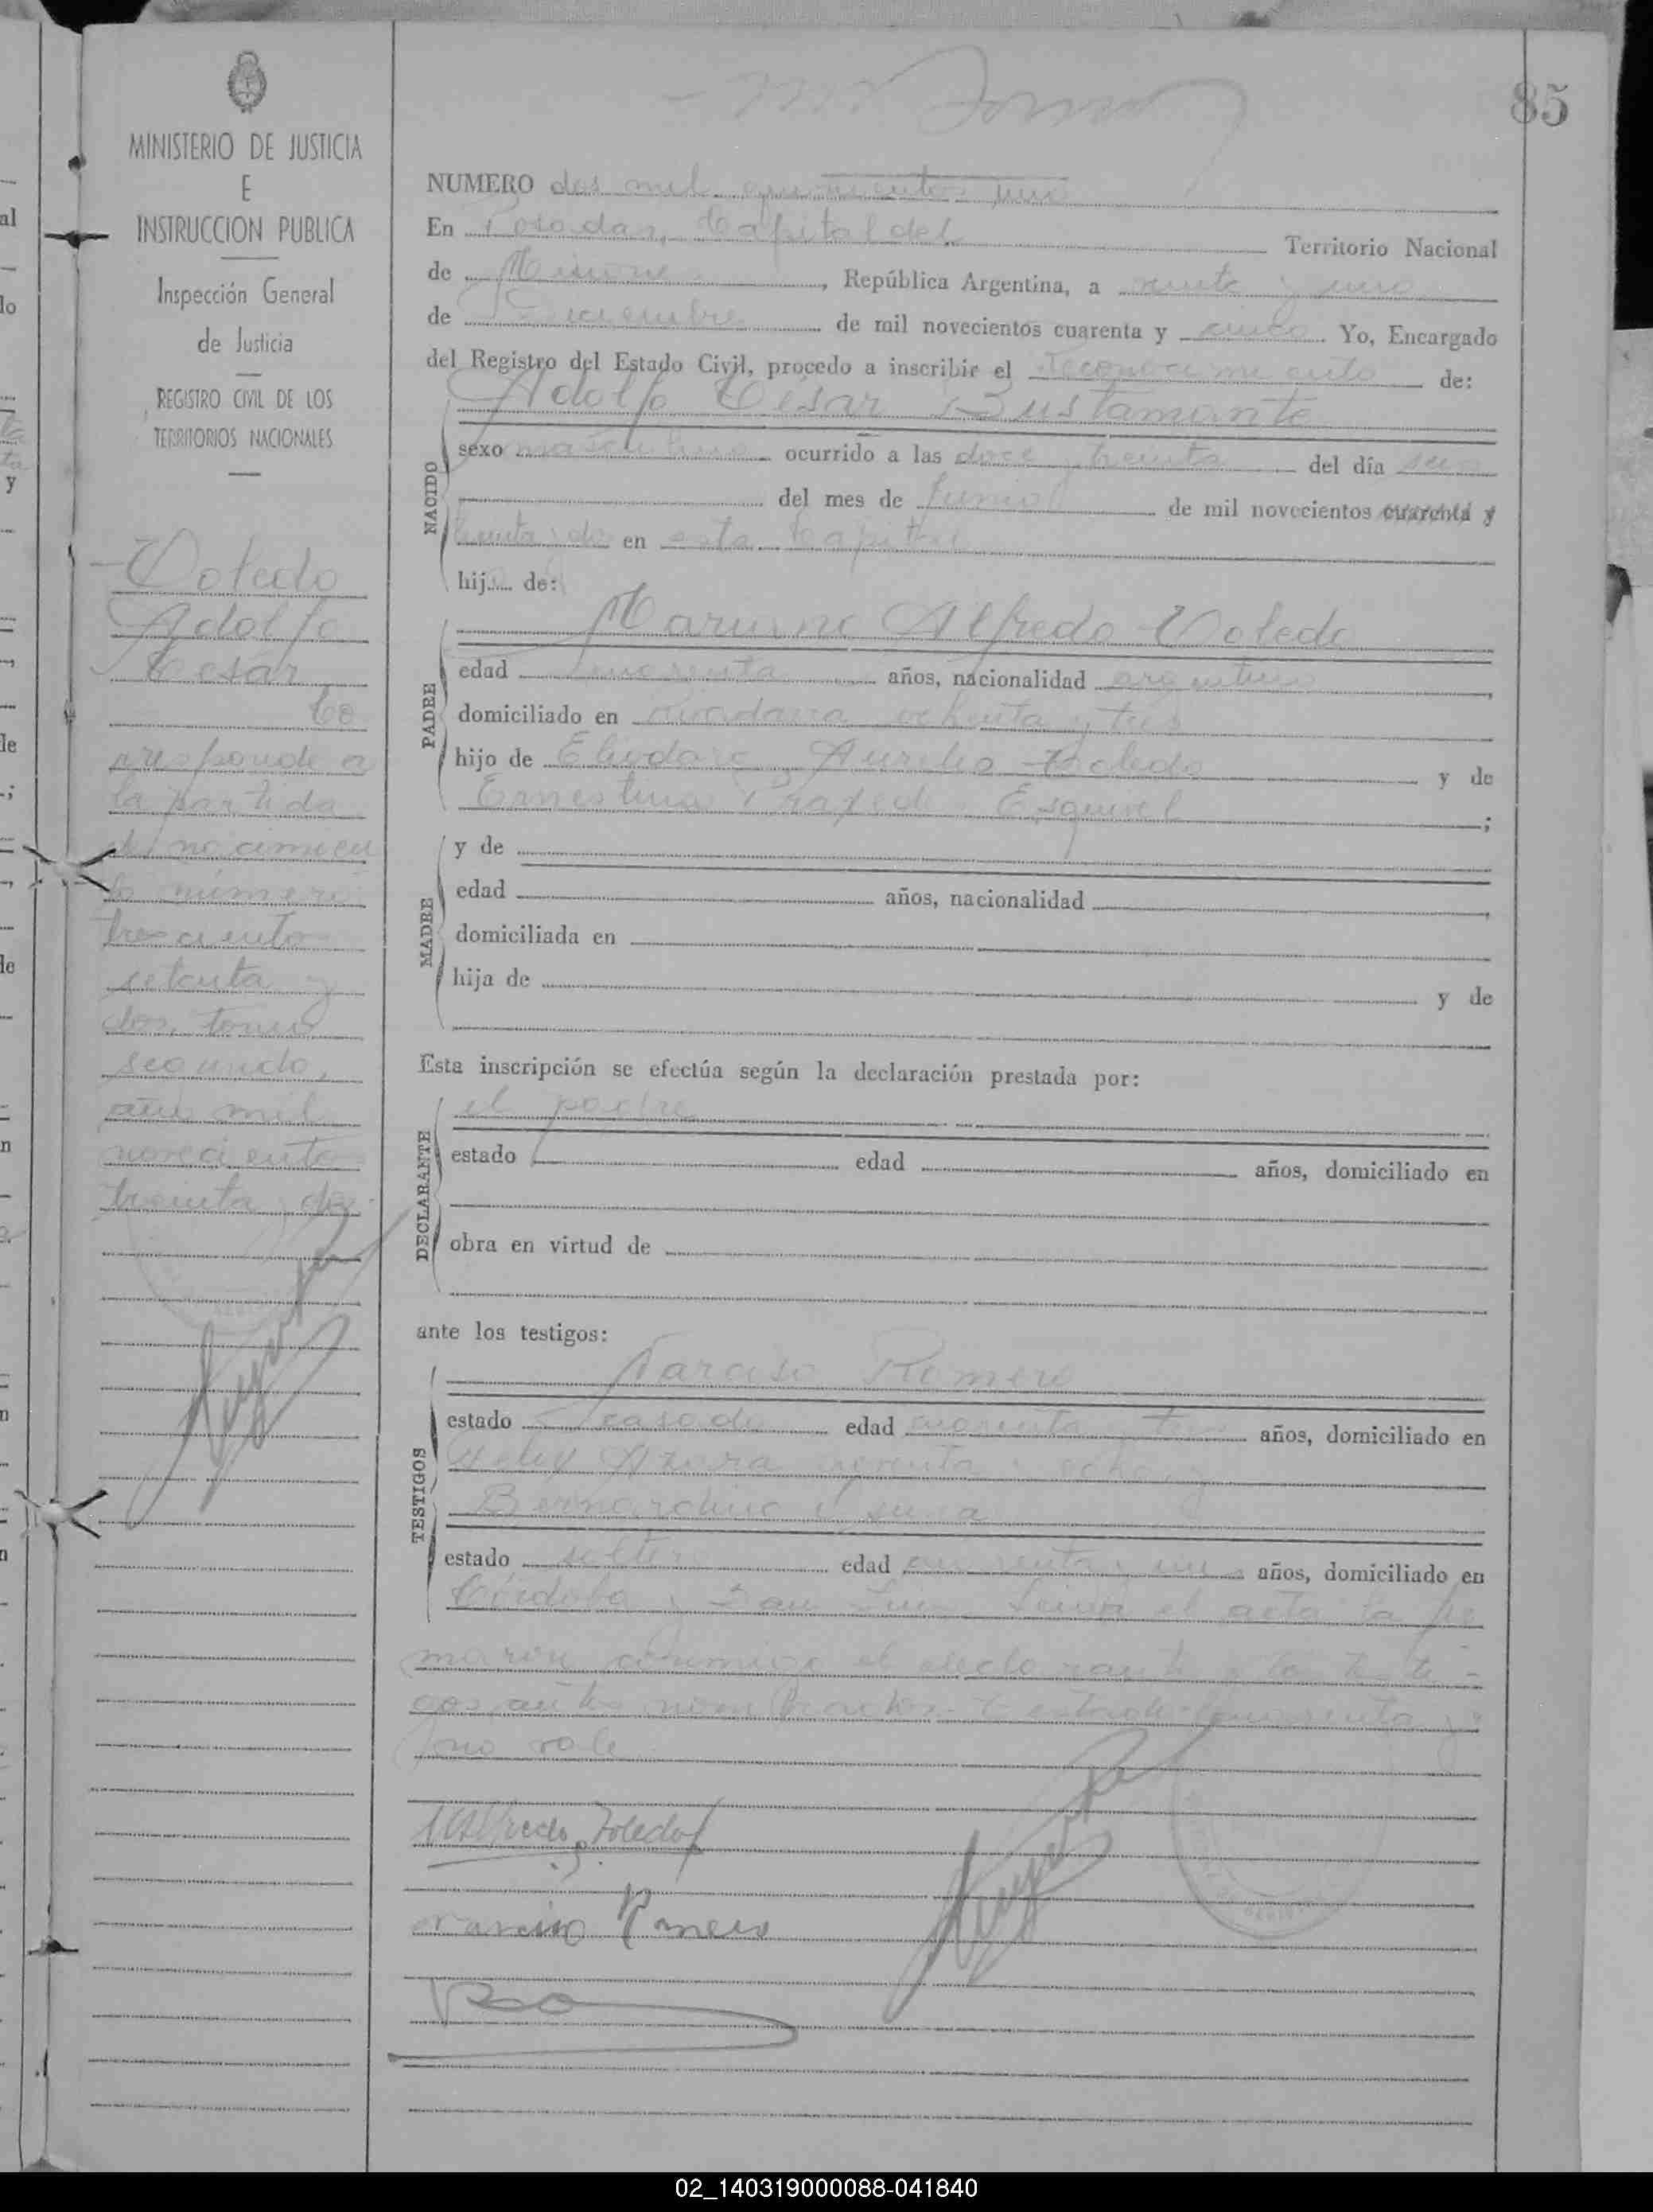 85
MINISTERIO DE JUSTICIA
E
INSTRUCCION PUBLICA
Inspección General
de Justicia
REGISTRO CIVIL DE LOS
TERRITORIOS NACIONALES
Toledo
Adolfo
César
Co
rresponde a
la partida
de nacimien
to número
trescientos
setenta y
dos, tomo
segundo,
año mil
novecientos
treinta y dos
NUMERO dos mil quinientos uno
En Posadas, Capital del Territorio Nacional
de Misiones, República Argentina, a veinte y uno
de Diciembre de mil novecientos cuarenta y cinco Yo, Encargado
del Registro del Estado Civil, procedo a inscribir el Reconocimiento de:
NACIDO
Adolfo César Bustamante
sexo masculino ocurrido a las doce y treinta del día seis
del mes de Junio de mil novecientos cuarenta y
treinta y dos en esta Capital
hij de:
PADRE
Mariano Alfredo Toledo
edad cuarenta años, nacionalidad argentino,
domiciliado en Rivadavia ochenta y tres
hijo de Eliodoro Aurelio Toledo y de
Ernestina Praxedi Esquivel ;
MADRE
y de
edad años, nacionalidad ,
domiciliada en
hija de y de
Esta inscripción se efectúa según la declaración prestada por:
DECLARANTE
el padre
estado edad años, domiciliado en
obra en virtud de
ante los testigos:
TESTIGOS
Narciso Romero
estado casado edad cuarenta y tres años, domiciliado en
Félix Azara y
Bernardino
estado soltero edad cuarenta y un años, domiciliado en
Córdoba y San Luis Leída el acta la fir
maron conmigo el declarante y los testi-
gos antes nombrados.- Testado: cuarenta y:
no vale
Alfredo Toledo
Narciso Romero
02_140319000088-041840